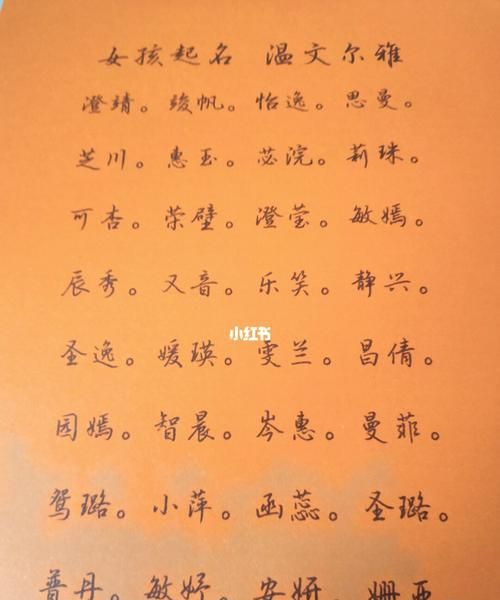 女孩起名 温文尔雅
澄靖。竣帆。怡逸。思曼。
芝川。惠玉。苾浣。莉珠。
可杏。荣璧。澄莹。敏嫣。
辰秀。又音。乐笑。静兴。
小红书
圣逸。媛瑛。雯兰。昌倩。
园嫣。智晨。岑惠。曼菲。
鸳璐。小萍。函蕊。圣璐。
普丹。敏妤。安妍。姗亚